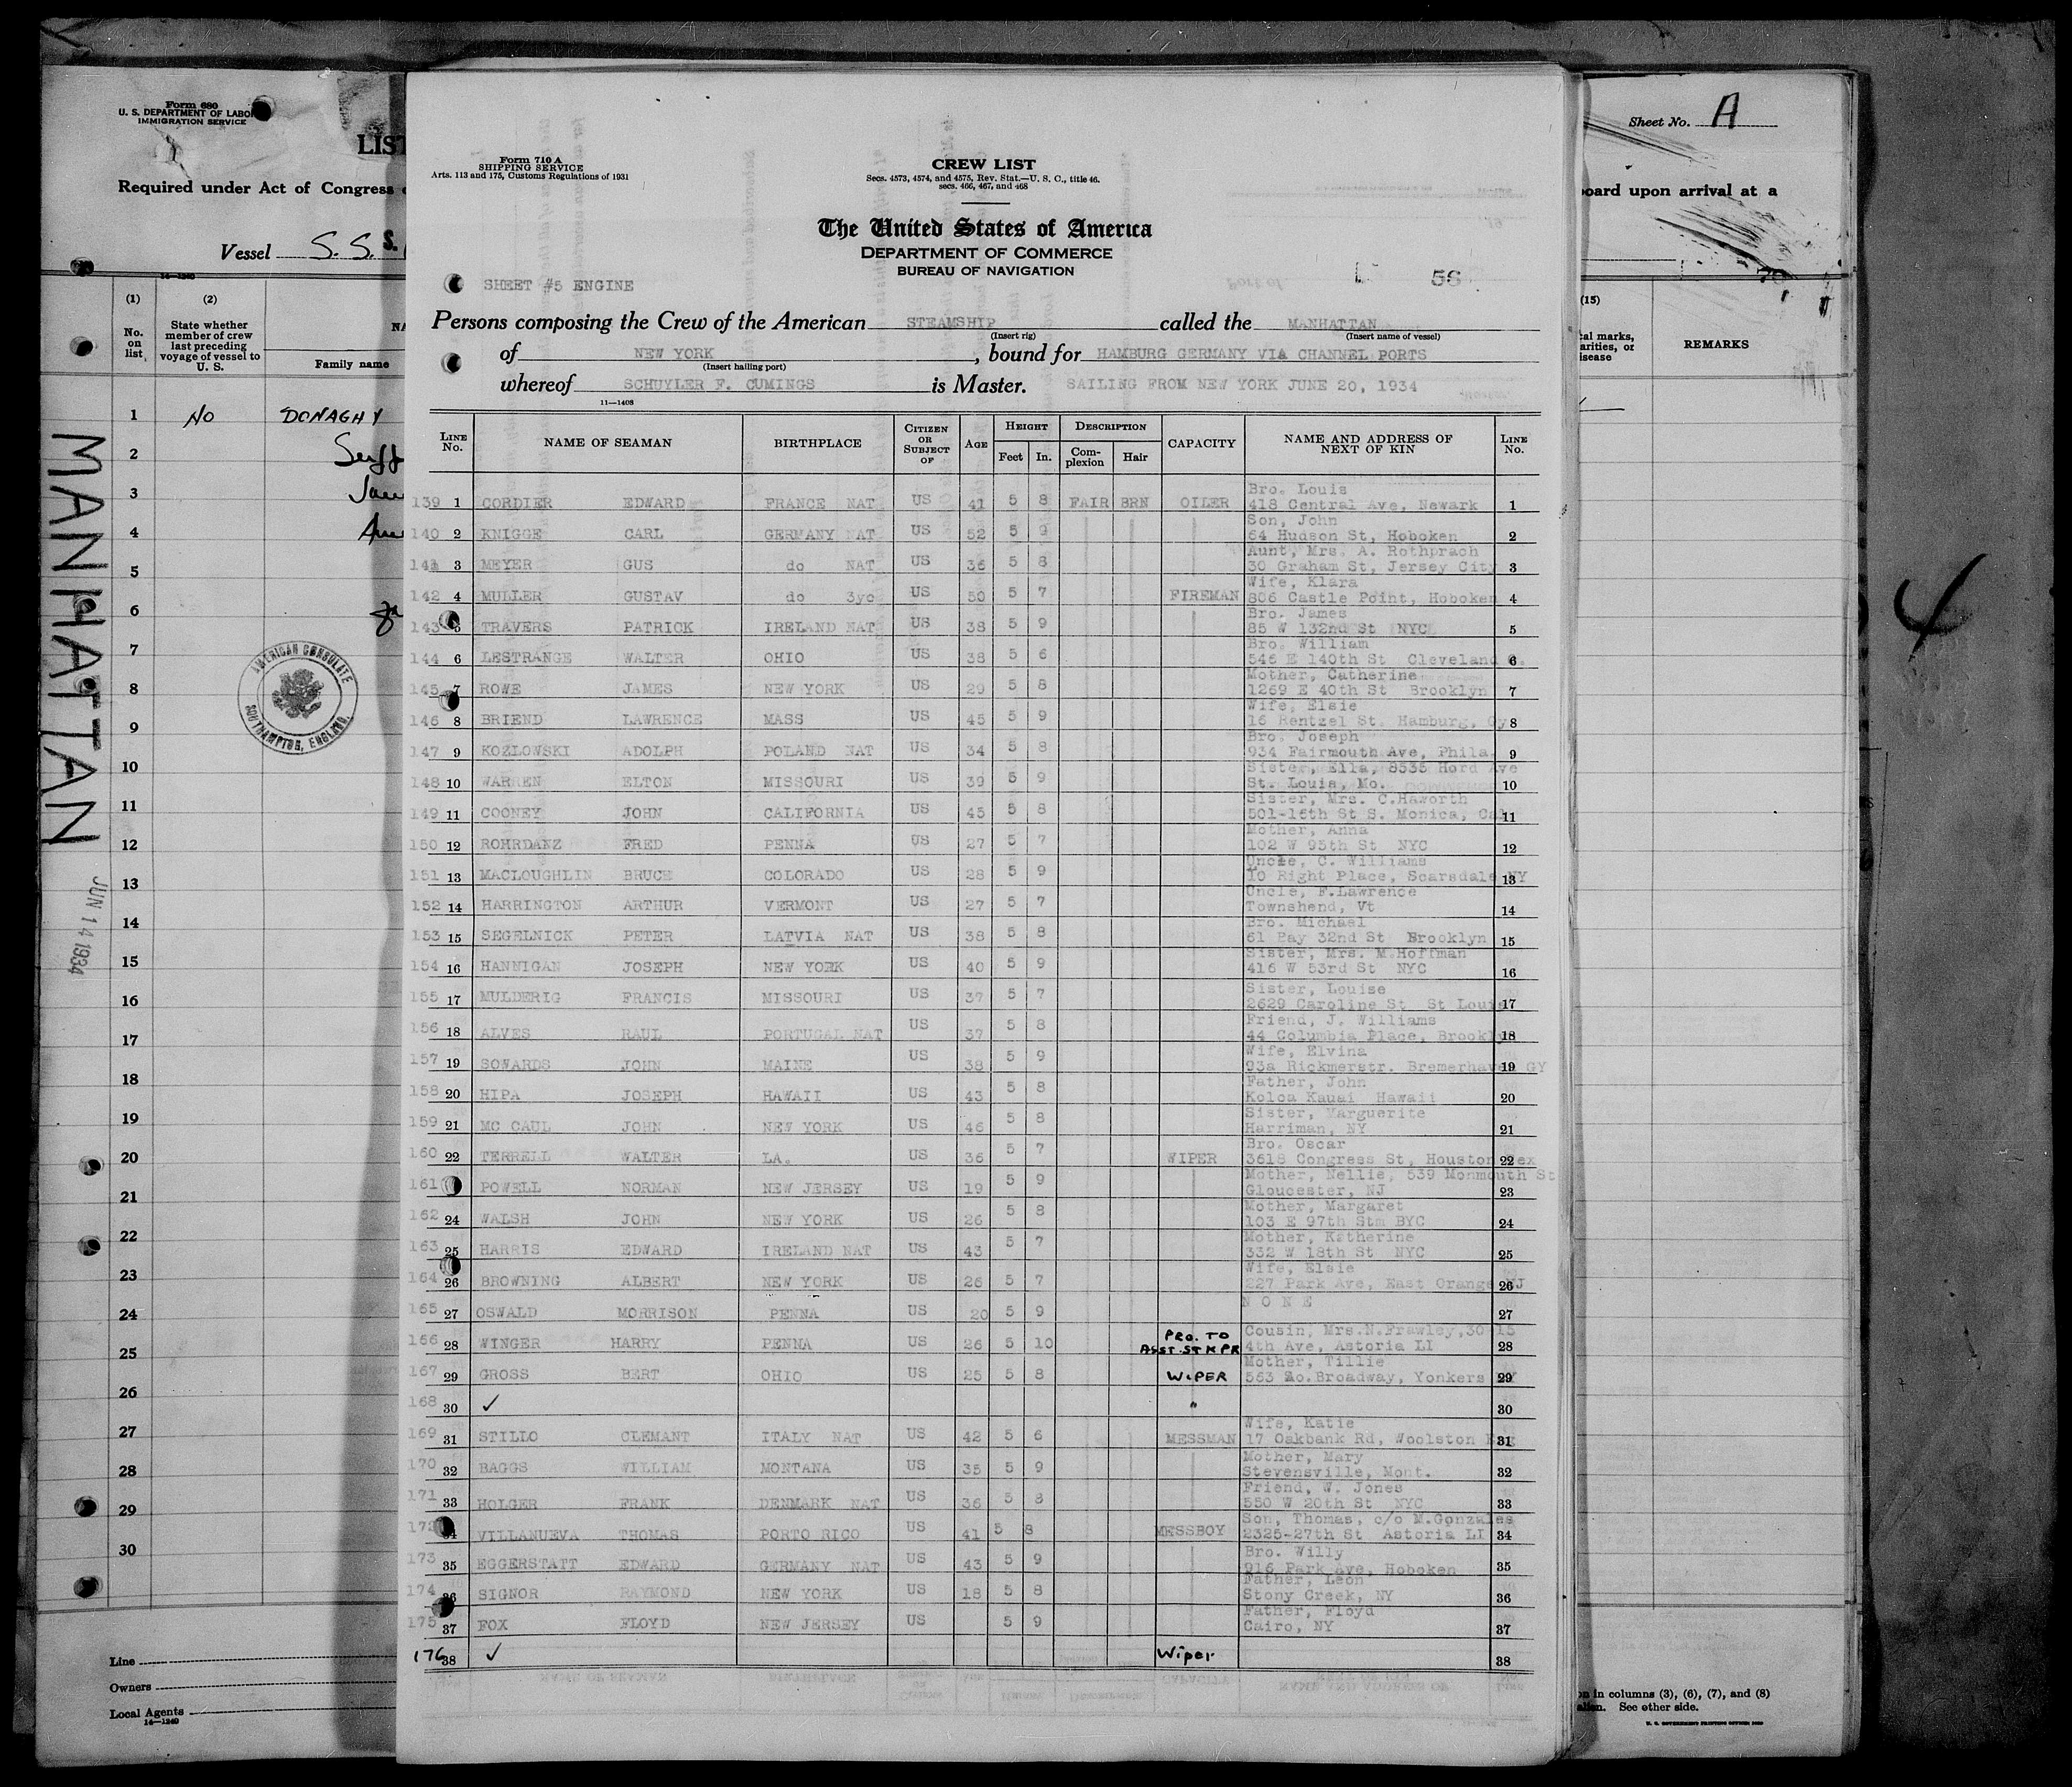 Form 680
U. S. DEPARTMENT OF LABOR
IMMIGRATION SERVICE
LIST
Required under Act of Congress
Vessel S.S.
14—1240
(1) (2)
No. on list
State whether member of crew last preceding voyage of vessel to U. S.
Family name
1 NO DONAGHY
2
3
4
5
6
7
8
9
10
11
12
13
14
15
16
17
18
19
20
21
22
23
24
25
26
27
28
29
30
AMERICAN CONSULATE
SOUTHAMPTON, ENGLAND.
MANHATTAN
JUN 14 1934
Line
Owners
Local Agents
14—1240
Form 710 A
SHIPPING SERVICE
Arts. 113 and 175, Customs Regulations of 1931
CREW LIST
Secs. 4573, 4574, and 4575, Rev. Stat.—U. S. C., title 46.
secs. 466, 467, and 468
The United States of America
DEPARTMENT OF COMMERCE
BUREAU OF NAVIGATION
SHEET #5 ENGINE 56
Persons composing the Crew of the American STEAMSHIP called the MANHATTAN
(Insert rig) (Insert name of vessel)
of NEW YORK, bound for HAMBURG GERMANY VIA CHANNEL PORTS
(Insert hailing port)
whereof SCHUYLER F. CUMINGS is Master. SAILING FROM NEW YORK JUNE 20, 1934
11—1408
LINE No. NAME OF SEAMAN BIRTHPLACE CITIZEN OR SUBJECT OF AGE HEIGHT DESCRIPTION CAPACITY NAME AND ADDRESS OF NEXT OF KIN LINE No.
Feet In. Complexion Hair
Bro. Louis
139 1 CORDIER EDWARD FRANCE NAT US 41 5 8 FAIR BRN OILER 418 Central Ave, Newark 1
Son, John
140 2 KNIGGE CARL GERMANY NAT US 52 5 9 64 Hudson St, Hoboken 2
Aunt, Mrs. A. Rothprach
141 3 MEYER GUS do NAT US 36 5 8 30 Graham St, Jersey City 3
Wife, Klara
142 4 MULLER GUSTAV do 3yc US 50 5 7 FIREMAN 806 Castle Point, Hoboken 4
Bro. James
143 5 TRAVERS PATRICK IRELAND NAT US 38 5 9 85 W 132nd St NYC 5
Bro. William
144 6 LESTRANGE WALTER OHIO US 38 5 6 546 E 140th St Cleveland 6
Mother, Catherine
145 7 ROWE JAMES NEW YORK US 29 5 8 1269 E 40th St Brooklyn 7
Wife, Elsie
146 8 BRIEND LAWRENCE MASS US 45 5 9 16 Rentzel St. Hamburg, Gy 8
Bro. Joseph
147 9 KOZLOWSKI ADOLPH POLAND NAT US 34 5 8 934 Fairmouth Ave, Phila. 9
Sister, Ella, 8535 Hord Ave
148 10 WARREN ELTON MISSOURI US 39 5 9 St. Louis, Mo. 10
Sister, Mrs. C.Haworth
149 11 COONEY JOHN CALIFORNIA US 45 5 8 501-15th St S. Monica, Cal 11
Mother, Anna
150 12 ROHRDANZ FRED PENNA US 27 5 7 102 W 95th St NYC 12
Uncle, C. Williams
151 13 MACLOUGHLIN BRUCE COLORADO US 28 5 9 10 Right Place, Scarsdale NY 13
Uncle, F.Lawrence
152 14 HARRINGTON ARTHUR VERMONT US 27 5 7 Townshend, Vt 14
Bro. Michael
153 15 SEGELNICK PETER LATVIA NAT US 38 5 8 61 Bay 32nd St Brooklyn 15
Sister, Mrs. M.Hoffman
154 16 HANNIGAN JOSEPH NEW YORK US 40 5 9 416 W 53rd St NYC 16
Sister, Louise
155 17 MULDERIG FRANCIS MISSOURI US 37 5 7 2629 Caroline St St Louis 17
Friend, J. Williams
156 18 ALVES RAUL PORTUGAL NAT US 37 5 8 44 Columbia Place, Brookly 18
Wife, Elvina
157 19 SOWARDS JOHN MAINE US 38 5 9 93a Rickmerstr. Bremerhaven GY 19
Father, John
158 20 HIPA JOSEPH HAWAII US 43 5 8 Koloa Kauai Hawaii 20
Sister, Marguerite
159 21 MC CAUL JOHN NEW YORK US 46 5 8 Harriman, NY 21
Bro. Oscar
160 22 TERRELL WALTER LA. US 36 5 7 WIPER 3618 Congress St, Houston Tex 22
Mother, Nellie, 539 Monmouth St
161 POWELL NORMAN NEW JERSEY US 19 5 9 Gloucester, NJ 23
Mother, Margaret
162 24 WALSH JOHN NEW YORK US 26 5 8 103 E 97th Stm BYC 24
Mother, Katherine
163 25 HARRIS EDWARD IRELAND NAT US 43 5 7 332 W 18th St NYC 25
Wife, Elsie
164 26 BROWNING ALBERT NEW YORK US 26 5 7 227 Park Ave, East Orange NJ 26
165 27 OSWALD MORRISON PENNA US 20 5 9 N O N E 27
PRO. TO Cousin, Mrs.N.Frawley,30-15
166 28 WINGER HARRY PENNA US 26 5 10 ASST. ST K PR 4th Ave, Astoria LI 28
Mother, Tillie
167 29 GROSS BERT OHIO US 25 5 8 WIPER 563 So.Broadway, Yonkers NY 29
168 30 ✓ " 30
Wife, Katie
169 31 STILLO CLEMANT ITALY NAT US 42 5 6 MESSMAN 17 Oakbank Rd, Woolston 31
Mother, Mary
170 32 BAGGS WILLIAM MONTANA US 35 5 9 Stevensville, Mont. 32
Friend, W. Jones
171 33 HOLGER FRANK DENMARK NAT US 36 5 8 550 W 20th St NYC 33
Son, Thomas, c/o M.Gonzales
172 34 VILLANUEVA THOMAS PORTO RICO US 41 5 8 MESSBOY 2325-27th St Astoria LI 34
Bro. Willy
173 35 EGGERSTATT EDWARD GERMANY NAT US 43 5 9 916 Park Ave, Hoboken 35
Father, Leon
174 36 SIGNOR RAYMOND NEW YORK US 18 5 8 Stony Creek, NY 36
Father, Floyd
175 37 FOX FLOYD NEW JERSEY US 5 9 Cairo, NY 37
176 38 ✓ Wiper 38
Sheet No. A
board upon arrival at a
(15)
marks,
REMARKS
4
in columns (3), (6), (7), and (8)
See other side.
U. S. GOVERNMENT PRINTING OFFICE